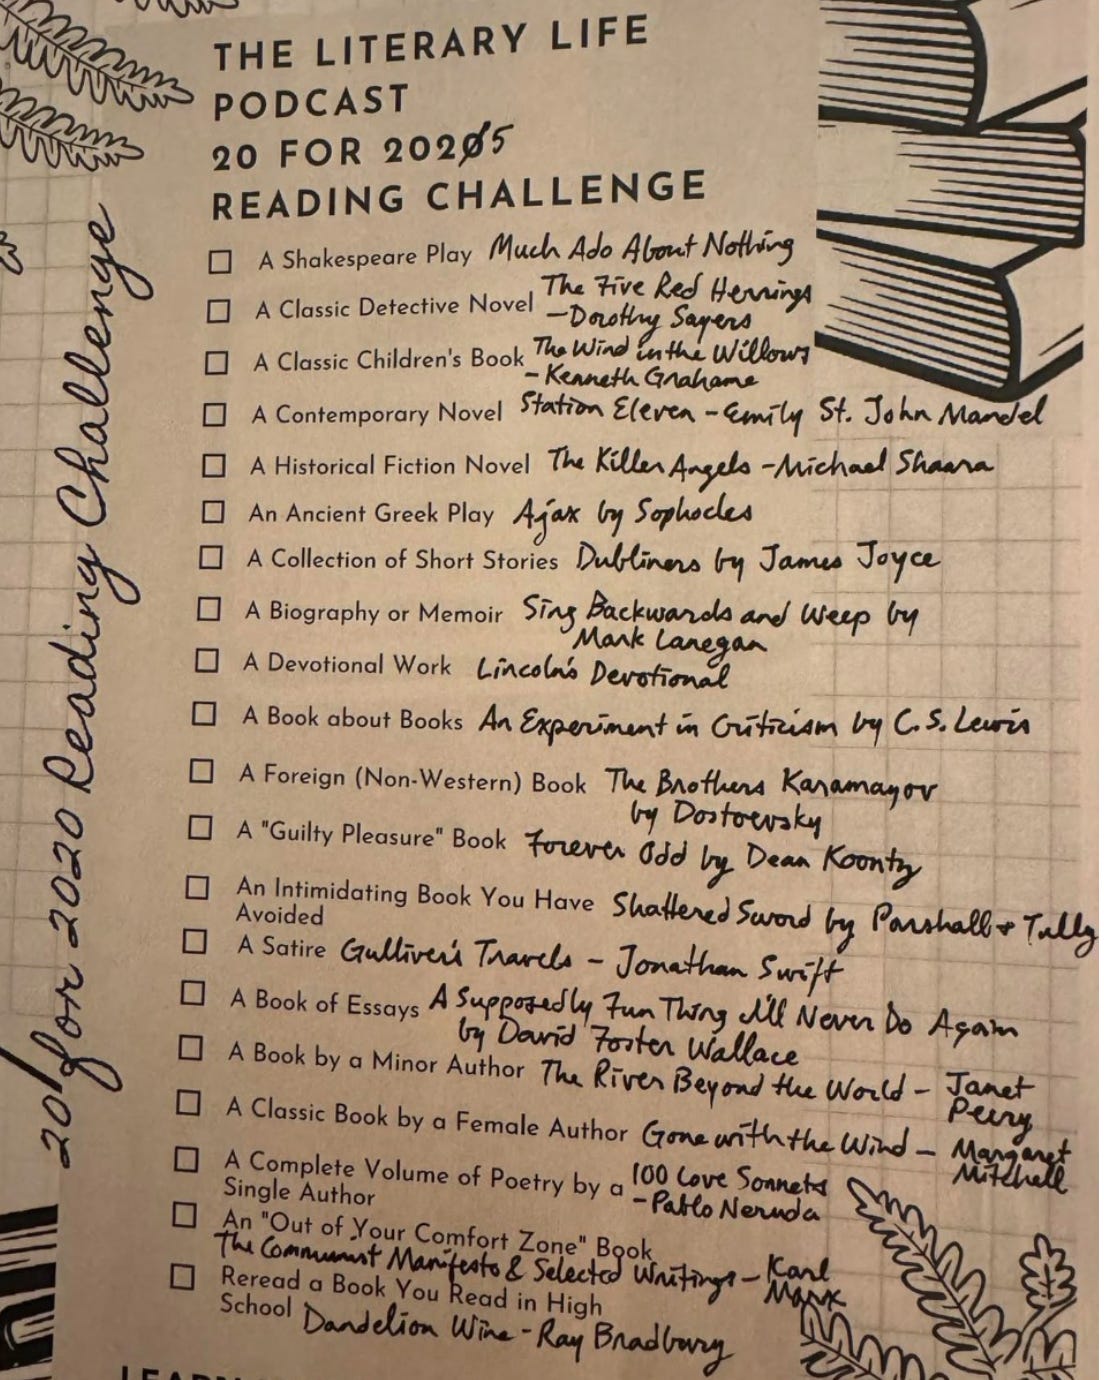 THE LITERARY LIFE
PODCAST
20 FOR 20205
READING CHALLENGE
A Shakespeare Play Much Ado About Nothing
A Classic Detective Novel The Five Red Herrings
- Dorothy Sayers
A Classic Children's Book The Wind in the Willows
- Kenneth Grahame
A Contemporary Novel Station Eleven - Emily St. John Mandel
A Historical Fiction Novel The Killer Angels - Michael Shaara
An Ancient Greek Play Ajax by Sophocles
A Collection of Short Stories Dubliners by James Joyce
A Biography or Memoir Sing Backwards and Weep by
Mark Lanegan
A Devotional Work Lincoln's Devotional
A Book about Books An Experiment in Criticism by C.S. Lewis
A Foreign (Non-Western) Book The Brothers Karamazov
by Dostoevsky
A "Guilty Pleasure" Book Forever Odd by Dean Koontz
An Intimidating Book You Have Shattered Sword by Parshall & Tully
Avoided
A Satire Gulliver's Travels - Jonathan Swift
A Book of Essays A Supposedly Fun Thing I'll Never Do Again
by David Foster Wallace
A Book by a Minor Author The River Beyond the World - Janet
Peery
A Classic Book by a Female Author Gone with the Wind - Margaret
Mitchell
A Complete Volume of Poetry by a 100 Love Sonnets
Single Author - Pablo Neruda
An "Out of Your Comfort Zone" Book
The Communist Manifesto & Selected Writings - Karl
Marx
Reread a Book You Read in High
School Dandelion Wine - Ray Bradbury
20 for 2020 Reading Challenge